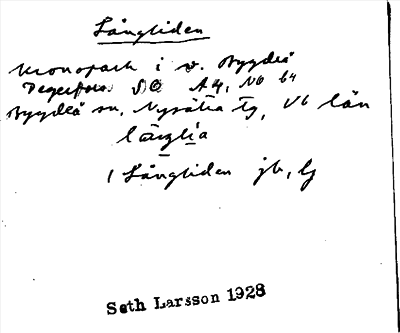 Långliden
Kronopark i v. Bygdeå
Degerfors SO A4, NO b4
Bygdeå sn, Nysätra tg, Vb län
långlia
1 Långliden jb, lj
Seth Larsson 1928